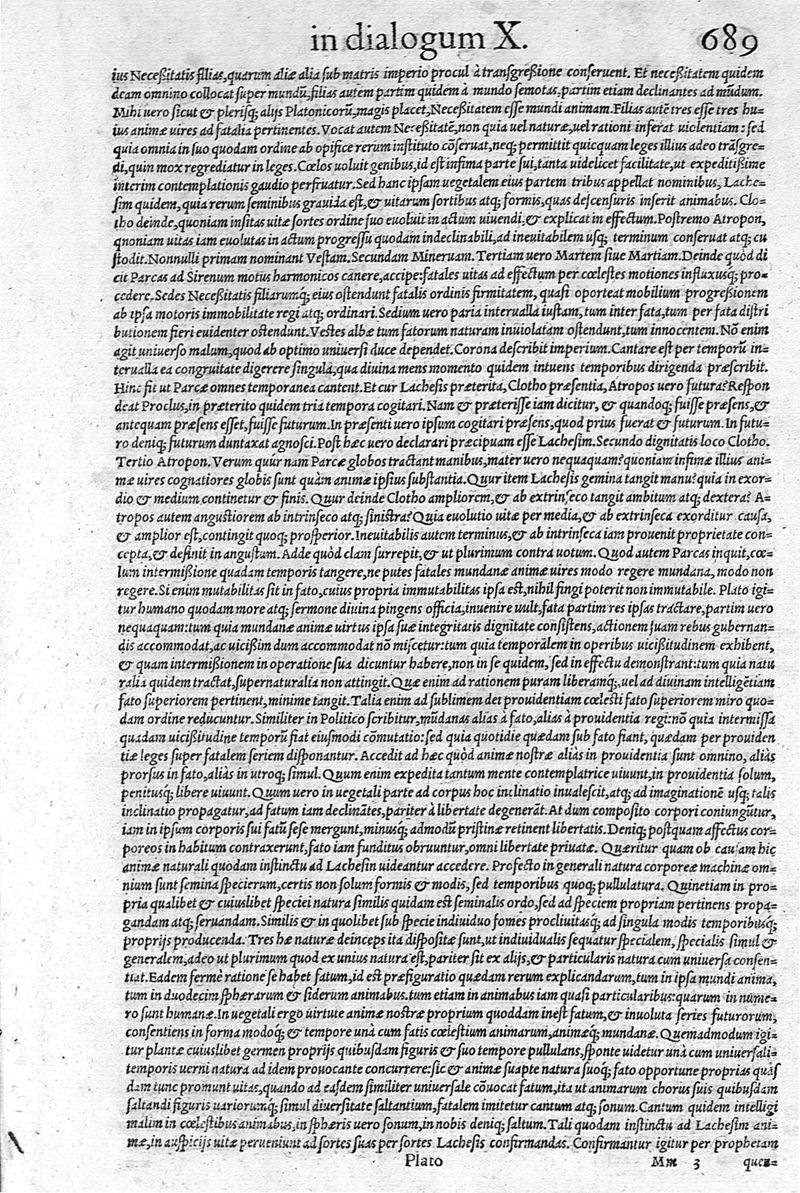 in dialogum X. 689
ius Neceßitatis filias, quarum aliæ alia sub matris imperio procul à transgreßione conseruent. Et necessitatem quidem
deam omnino collocat super mundū, filias autem partim quidem à mundo semotas, partim etiam declinantes ad mūdum.
Mihi uero sicut & plerisq; alijs Platonicorū, magis placet, Neceßitatem esse mundi animam. Filias autē tres esse tres hu-
ius animæ uires ad fatalia pertinentes. Vocat autem Neceßitatē, non quia uel naturæ, uel rationi inferat uiolentiam: sed
quia omnia in suo quodam ordine ab opifice rerum instituto cōseruat, neq; permittit quicquam leges illius adeo trāsgre-
di, quin mox regrediatur in leges. Cœlos uoluit genibus, id est infima parte sui, tanta uidelicet facilitate, ut expeditißime
interim contemplationis gaudio perfruatur. Sed hanc ipsam uegetalem eius partem tribus appellat nominibus, Lache-
sim quidem, quia rerum seminibus grauida est, & uitarum sortibus atq; formis, quas descensuris inserit animabus. Clo-
tho deinde, quoniam insitas uitæ sortes ordine suo euoluit in actum uiuendi, & explicat in effectum. Postremo Atropon,
qnoniam uitas iam euolutas in actum progressu quodam indeclinabili, ad ineuitabilem usq; terminum conseruat atq; cu
stodit. Nonnulli primam nominant Vestam. Secundam Mineruam. Tertiam uero Martem siue Martiam. Deinde quòd di
cit Parcas ad Sirenum motus harmonicos canere, accipe: fatales uitas ad effectum per cœlestes motiones influxusq; pro-
cedere. Sedes Necessitatis filiarumq; eius ostendunt fatalis ordinis firmitatem, quasi oporteat mobilium progreßionem
ab ipsa motoris immobilitate regi atq; ordinari. Sedium uero paria interualla iustam, tum inter fata, tum per fata distri
butionem fieri euidenter ostendunt. Vestes albæ tum fatorum naturam inuiolatam ostendunt, tum innocentem. Nō enim
agit uniuerso malum, quod ab optimo uniuersi duce dependet. Corona describit imperium. Cantare est per temporū in-
terualla ea congruitate digerere singula, qua diuina mens momento quidem intuens temporibus dirigenda præscribit.
Hinc fit ut Parcæ omnes temporanea cantent. Et cur Lachesis præterita, Clotho præsentia, Atropos uero futura? Respon
deat Proclus, in præterito quidem tria tempora cogitari. Nam & præterisse iam dicitur, & quandoq; fuisse præsens, &
antequam præsens esset, fuisse futurum. In præsenti uero ipsum cogitari præsens, quod prius fuerat & futurum. In futu-
ro deniq; futurum duntaxat agnosci. Post hæc uero declarari præcipuam esse Lachesim. Secundo dignitatis loco Clotho.
Tertio Atropon. Verum qúur nam Parcæ globos tractant manibus, mater uero nequaquam? quoniam infimæ illius ani-
mæ uires cognatiores globis sunt quàm animæ ipsius substantia. Quur item Lachesis gemina tangit manu? quia in exor-
dio & medium continetur & finis. Quur deinde Clotho ampliorem, & ab extrinseco tangit ambitum atq; dextera? A-
tropos autem angustiorem ab intrinseco atq; sinistra? Quia euolutio uitæ per media, & ab extrinseca exorditur causa,
& amplior est, contingit quoq; prosperior. Ineuitabilis autem terminus, & ab intrinseca iam prouenit proprietate con-
cepta, & definit in angustum. Adde quòd clam surrepit, & ut plurimum contra uotum. Quod autem Parcas inquit, cœ-
lum intermißione quadam temporis tangere, ne putes fatales mundanæ animæ uires modo regere mundana, modo non
regere. Si enim mutabilitas sit in fato, cuius propria immutabilitas ipsa est, nihil fingi poterit non immutabile. Plato igi-
tur humano quodam more atq; sermone diuina pingens officia, inuenire uult, fata partim res ipsas tractare, partim uero
nequaquam: tum quia mundanæ animæ uirtus ipsa suæ integritatis dignitate consistens, actionem suam rebus gubernan-
dis accommodat, ac uicißim dum accommodat nō miscetur: tum quia temporalem in operibus uicißitudinem exhibent,
& quam intermißionem in operatione sua dicuntur habere, non in se quidem, sed in effectu demonstrant: tum quia natu
ralia quidem tractat, supernaturalia non attingit. Quæ enim ad rationem puram liberamq;, uel ad diuinam intelligētiam
fato superiorem pertinent, minime tangit. Talia enim ad sublimem dei prouidentiam cœlesti fato superiorem miro quo-
dam ordine reducuntur. Similiter in Politico scribitur, mūdanas alias à fato, alias à prouidentia regi: nō quia intermissa
quadam uicißitudine temporū fiat eiusmodi cōmutatio: sed quia quotidie quædam sub fato fiant, quædam per prouiden
tiæ leges super fatalem seriem disponantur. Accedit ad hæc quòd animæ nostræ aliàs in prouidentia sunt omnino, aliàs
prorsus in fato, aliàs in utroq; simul. Quum enim expedita tantum mente contemplatrice uiuunt, in prouidentia solum,
penitusq; libere uiuunt. Quum uero in uegetali parte ad corpus hoc inclinatio inualescit, atq; ad imaginationē usq; talis
inclinatio propagatur, ad fatum iam declinātes, pariter à libertate degenerāt. At dum composito corpori coniunguntur,
iam in ipsum corporis sui fatū sese mergunt, minusq; admodū pristinæ retinent libertatis. Deniq; postquam affectus cor-
poreos in habitum contraxerunt, fato iam funditus obruuntur, omni libertate priuatæ. Quæritur quam ob causam hic
animæ naturali quodam instinctu ad Lachesin uideantur accedere. Profecto in generali natura corporeæ machinæ om-
nium sunt semina specierum, certis non solum formis & modis, sed temporibus quoq; pullulatura. Quinetiam in pro-
pria qualibet & cuiuslibet speciei natura similis quidam est seminalis ordo, sed ad speciem propriam pertinens propa-
gandam atq; seruandam. Similis & in quolibet sub specie indiuiduo fomes procliuitasq; ad singula modis temporibusq;
proprijs producenda. Tres hæ naturæ deinceps ita dispositæ sunt, ut indiuidualis sequatur specialem, specialis simul &
generalem, adeo ut plurimum quod ex unius natura est, pariter sit ex alijs, & particularis natura cum uniuersa consen-
tiat. Eadem fermè ratione se habet fatum, id est præfiguratio quædam rerum explicandarum, tum in ipsa mundi anima,
tum in duodecim sphærarum & siderum animabus. tum etiam in animabus iam quasi particularibus: quarum in nume-
ro sunt humanæ. In uegetali ergo uirtute animæ nostræ proprium quoddam inest fatum, & inuoluta series futurorum,
consentiens in forma modoq; & tempore unà cum fatis cœlestium animarum, animæq; mundanæ. Quemadmodum igi-
tur plantæ cuiuslibet germen proprijs quibusdam figuris & suo tempore pullulans, sponte uidetur unà cum uniuersali-
temporis uerni natura ad idem prouocante concurrere: sic & animæ suapte natura suoq; fato opportune proprias quas
dam tunc promunt uitas, quando ad easdem similiter uniuersale cōuocat fatum, ita ut animarum chorus suis quibusdam
saltandi figuris uariorumq; simul diuersitate saltantium, fatalem imitetur cantum atq; sonum. Cantum quidem intelligi
malim in cœlestibus animabus, in sphæris uero sonum, in nobis deniq; saltum. Tali quodam instinctu ad Lachesim ani-
mæ, in auspicijs uitæ perueniunt ad sortes suas per sortes Lachesis confirmandas. Confirmantur igitur per prophetam
Plato Mm 3 quen-